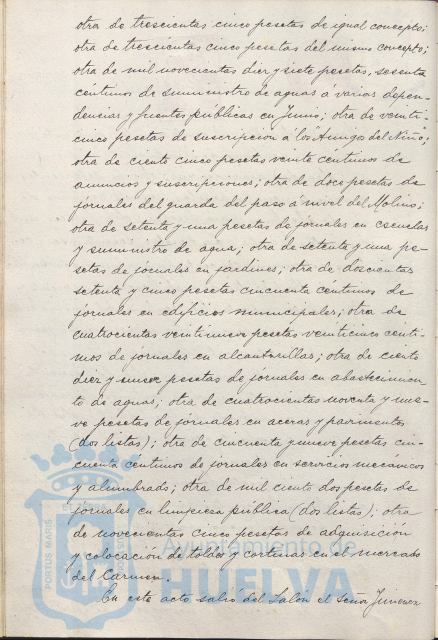 otra de trescientas cinco pesetas de igual concepto;
otra de trescientas cinco pesetas del mismo concepto;
otra de mil novecientas diez y siete pesetas, sesenta
céntimos de suministro de aguas á varias depen-
dencias y fuentes públicas en Junio; otra de veinti-
cinco pesetas de suscripcion á los "Amigos del Niño";
otra de ciento cinco pesetas veinte centimos de
anuncios y suscripciones; otra de doce pesetas de
jornales del guarda del paso á nivel del Molino;
otra de setenta y una pesetas de jornales en escuelas
y suministro de agua; otra de setenta y una pe-
setas de jornales en jardines; otra de doscientas
setenta y cinco pesetas cincuenta céntimos de
jornales en edificios municipales; otra de
cuatrocientas veintinueve pesetas veinticinco centi-
mos de jornales en alcantarillas; otra de ciento
diez y nueve pesetas de jornales en abastecimien
to de aguas; otra de cuatrocientas noventa y nue-
ve pesetas de jornales en aceras y pavimentos
(dos listas); otra de cincuenta y nueve pesetas cin-
cuenta céntimos de jornales en servicios mecánicos
y alumbrado; otra de mil ciento dos pesetas de
jornales en limpieza pública (dos listas); otra
de novecientas cinco pesetas de adquisición
y colocación de toldos y cortinas en el mercado
del Carmen.
En este acto salió del Salon el Señor Jimenez
PORTUS MARIS
Ayuntamiento de
HUELVA